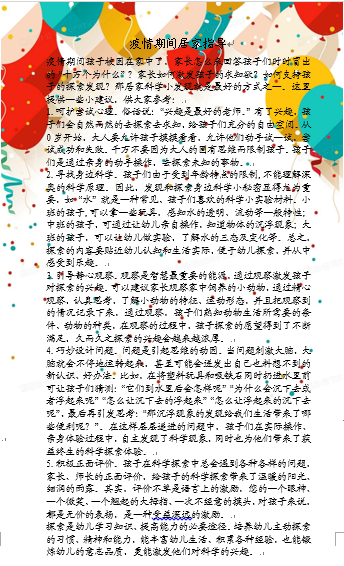 疫情期间居家指导
疫情期间孩子被困在家中了，家长怎么来回答孩子们时时冒出
的“十万个为什么”？家长如何激发孩子的求知欲？如何支持孩
子的探索发现？那居家科学小发现就是最好的方式之一。这里
提供一些小建议，供大家参考：
1.呵护尝试心理。俗话说：“兴趣是最好的老师。”有了兴趣，孩
子们会自然而然的去探索去求知，给孩子们充分的自由空间。从
0岁开始，大人要允许孩子摸摸看看，允许他们动手试一试，尝
试成功和失败。千万不要因为大人的固有思维而限制孩子。孩子
们是通过亲身的动手操作，去探索未知的事物。
2.寻找身边科学。孩子们由于受到年龄特点的限制，不能理解深
奥的科学原理。因此，发现和探索身边科学小秘密显得尤为重
要，如“水”就是一种常见、孩子们喜欢的科学小实验材料。小
班的孩子，可以拿一些玩具，感知水的透明、流动等一般特性；
中班的孩子，可通过让幼儿亲自操作，知道物体的沉浮现象；大
班的孩子，可以让幼儿做实验，了解水的三态及变化等。总之，
探索的内容要贴近幼儿认知和生活实际，便于幼儿探索，并从中
感受到乐趣。
3.引导静心观察。观察是智慧最重要的能源，通过观察激发孩子
对探索的兴趣。可以建议家长观察家中饲养的小动物，通过精心
观察，认真思考，了解小动物的特征、运动形态，并且把观察到
的情况记录下来，通过观察，孩子们熟知动物生活所需要的条
件、动物的种类，在观察的过程中，孩子探索的愿望得到了不断
满足，久而久之探索的兴趣会越来越浓厚。
4.巧妙设计问题。问题是引起思维的动因。当问题刺激大脑，大
脑就会不停地运转起来，甚至可能会迸发出自己也料想不到的
新认识、好办法。比如，在将塑料玩具和吸铁石同时扔进水里前
可让孩子们猜测：“它们到水里后会怎样呢”“为什么会沉下去或
者浮起来呢”“怎么让沉下去的浮起来”“怎么让浮起来的沉下去
呢”，最后再引发思考：“那沉浮现象的发现给我们生活带来了哪
些便利呢？”。在这样层层递进的问题中，孩子们在实际操作、
亲身体验过程中，自主发现了科学现象，同时也为他们带来了获
益终生的科学探索体验。
5.积极正面评价。孩子在科学探索中总会遇到各种各样的问题，
家长、师长的正面评价，给孩子的科学探索带来了温暖的阳光、
细润的雨露。其实，评价不单是语言上的激励，您的一个眼神、
一个微笑、一个翘起的大拇指、一次不经意的摸头，对孩子来说，
都是无价的表扬，是一种受益深远的激励。
探索是幼儿学习知识、提高能力的必要途径。培养幼儿主动探索
的习惯、精神和能力，能丰富幼儿生活、积累各种经验，也能锻
炼幼儿的意志品质，更能激发他们对科学的兴趣。